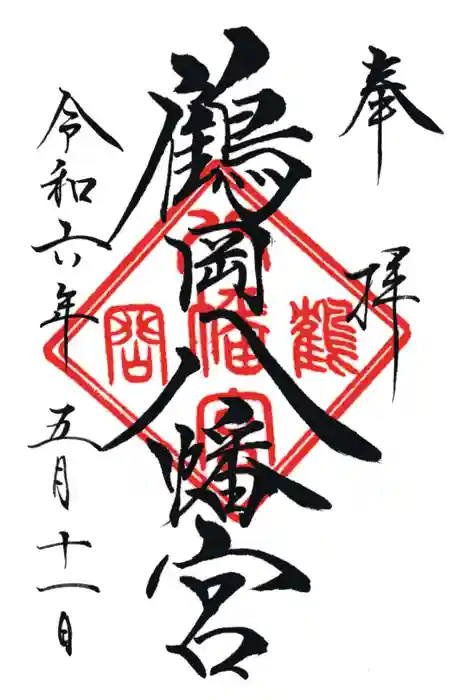 奉拝
鶴岡八幡宮
令和六年五月十一日
鶴
八幡宮
岡